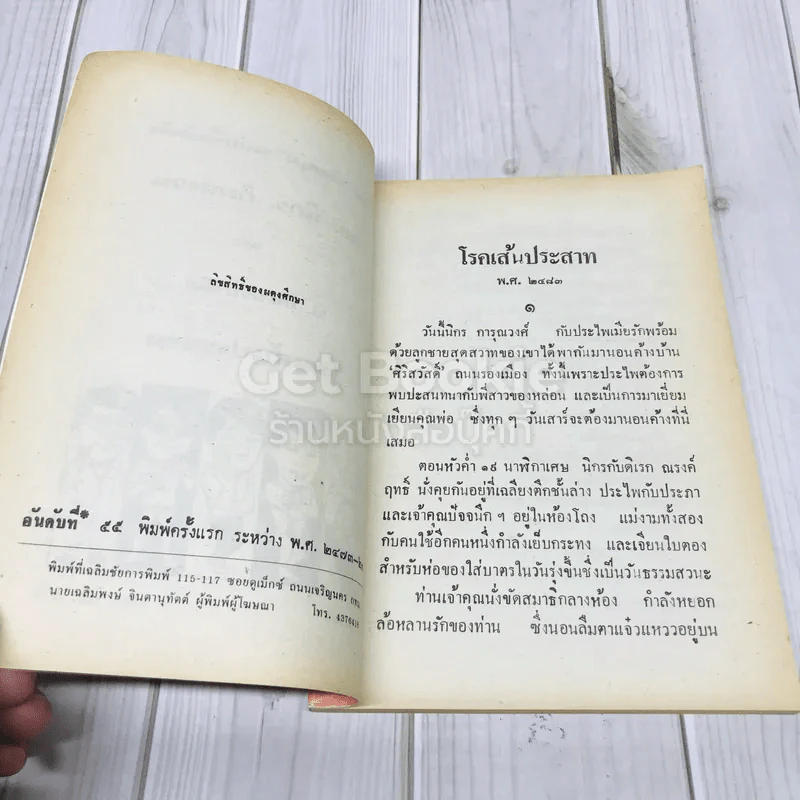 ลิขสิทธิ์ของผดุงศึกษา
อันดับที่ ๕๕ พิมพ์ครั้งแรก ระหว่าง พ.ศ. ๒๔๗๓-
พิมพ์ที่เฉลิมชัยการพิมพ์ 115-117 ซอยดูเม็กซ์ ถนนเจริญนคร
นายเฉลิมพงษ์ จินดานุทัตต์ ผู้พิมพ์ผู้โฆษณา โทร.
โรคเส้นประสาท
พ.ศ. ๒๔๘๓
๑
วันนี้นิกร การุณวงศ์ กับประไพเมียรักพร้อม
ด้วยลูกชายสุดสวาทของเขาได้พากันมานอนค้างบ้าน
‘ศิริสวัสดิ์’ ถนนรองเมือง ทั้งนี้เพราะประไพต้องการ
พบปะสนทนากับพี่สาวของหล่อน และเป็นการมาเยี่ยม
เยียนคุณพ่อ ซึ่งทุก ๆ วันเสาร์จะต้องมานอนค้างที่นี่
เสมอ
ตอนหัวค่ำ ๑๙ นาฬิกาเศษ นิกรกับดิเรก ณรงค์
ฤทธิ์ นั่งคุยกันอยู่ที่เฉลียงตึกชั้นล่าง ประไพกับประภา
และเจ้าคุณปัจจนึก ฯ อยู่ในห้องโถง แม่งามทั้งสอง
กับคนใช้อีกคนหนึ่งกำลังเย็บกระทง และเจียนใบตอง
สำหรับห่อของใส่บาตรในวันรุ่งขึ้นซึ่งเป็นวันธรรมสวนะ
ท่านเจ้าคุณนั่งขัดสมาธิกลางห้อง กำลังหยอก
ล้อหลานรักของท่าน ซึ่งนอนลืมตาแจ๋วแหววอยู่บน
Get Bookie
ร้านหนังสือบุ๊คกี้